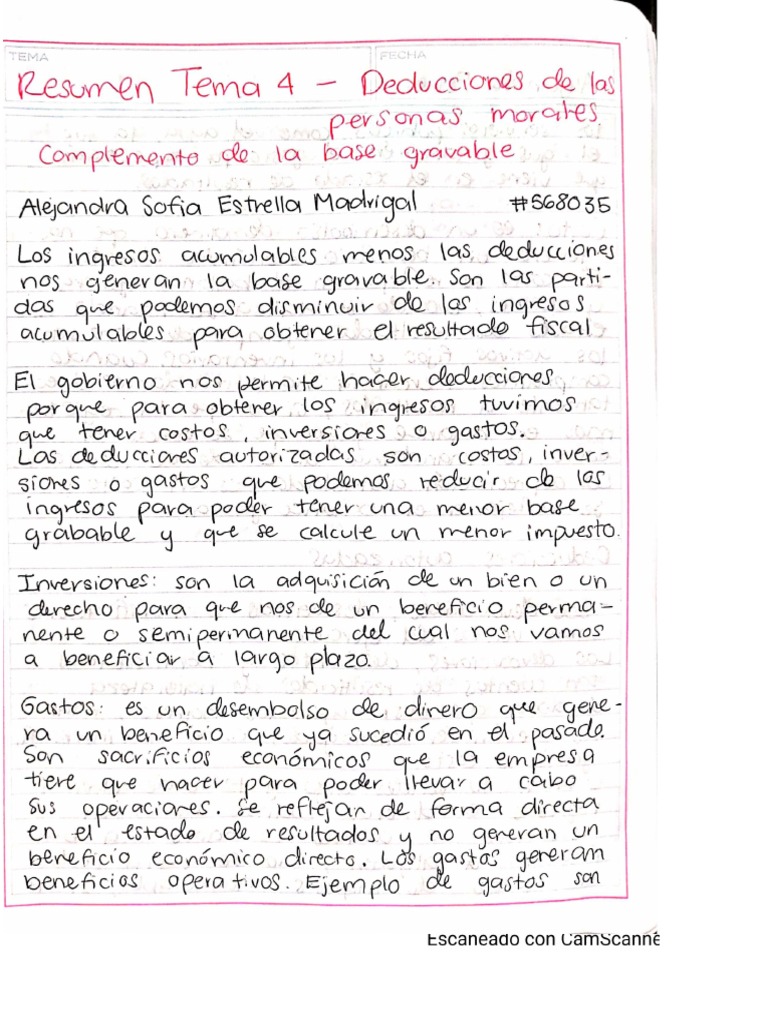 TEMA
FECHA
Resumen Tema 4 – Deducciones de las
personas morales
Complemento de la base gravable
Alejandra Sofia Estrella Madrigal #568035
Los ingresos acumulables menos las deducciones
nos generan la base gravable. Son las parti-
das que podemos disminuir de los ingresos
acumulables para obtener el resultado fiscal
El gobierno nos permite hacer deducciones,
porque para obtener los ingresos tuvimos
que tener costos, inversiones o gastos.
Las deducciones autorizadas son costos, inver-
siones o gastos que podemos reducir de los
ingresos para poder tener una menor base
grabable y que se calcule un menor impuesto.
Inversiones: son la adquisición de un bien o un
derecho para que nos de un beneficio perma-
nente o semipermanente del cual nos vamos
a beneficiar a largo plazo.
Gastos: es un desembolso de dinero que gene-
ra un beneficio que ya sucedió en el pasado.
Son sacrificios económicos que la empresa
tiene que hacer para poder llevar a cabo
sus operaciones. Se reflejan de forma directa
en el estado de resultados y no generan un
beneficio económico directo. Los gastos generam
beneficios operativos. Ejemplo de gastos son
Escaneado con CamScanne